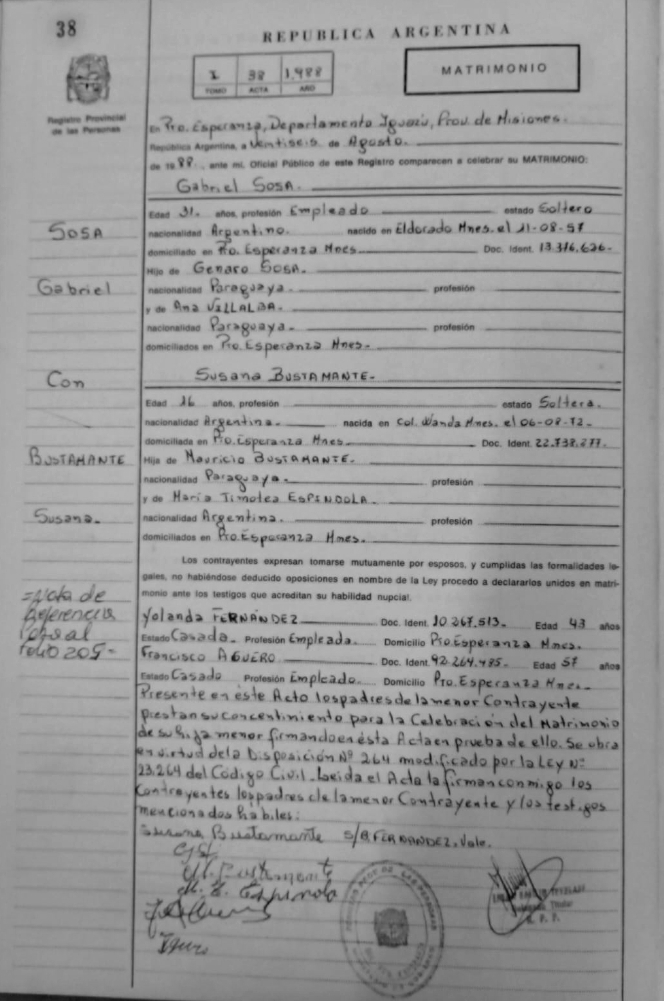 38
REPUBLICA ARGENTINA
I 38 1.988
TOMO ACTA AÑO
MATRIMONIO
Registro Provincial
de las Personas
En Pto. Esperanza, Departamento Iguazú, Prov. de Misiones.
República Argentina, a Veintiseis de Agosto.
de 19 88, ante mí, Oficial Público de este Registro comparecen a celebrar su MATRIMONIO:
Gabriel SOSA.
Edad 31. años, profesión Empleado estado Soltero
SOSA
nacionalidad Argentino. nacido en Eldorado Mnes. el 11-08-57
domiciliado en Pto. Esperanza Mnes Doc. Ident. 13.316.626.
Hijo de Genaro SOSA.
Gabriel
nacionalidad Paraguaya profesión
y de Ana VILLALBA.
nacionalidad Paraguaya. profesión
domiciliados en Pto. Esperanza Mnes.
Con
Susana BUSTAMANTE.
Edad 16 años, profesión estado Soltera.
nacionalidad Argentina. nacida en Col. Wanda Mnes. el 06-08-72.
domiciliada en Pto. Esperanza Mnes. Doc. Ident. 22.738.277.
BUSTAMANTE
Hija de Mauricio BUSTAMANTE.
nacionalidad Paraguaya. profesión
y de María Timotea ESPINDOLA.
Susana.
nacionalidad Argentina. profesión
domiciliados en Pto. Esperanza Mnes.
Los contrayentes expresan tomarse mutuamente por esposos, y cumplidas las formalidades le-
gales, no habiéndose deducido oposiciones en nombre de la Ley procedo a declararlos unidos en matri-
monio ante los testigos que acreditan su habilidad nupcial.
=Nota de
Referencia
al
folio 205-
Yolanda FERNÁNDEZ Doc. Ident. 10.267.513. Edad 43 años
Estado Casada. Profesión Empleada. Domicilio Pto. Esperanza Mnes.
Francisco AGUERO Doc. Ident. 92.264.485. Edad 57 años
Estado Casado Profesión Empleado. Domicilio Pto. Esperanza Mnes.
Presente en éste Acto los padres de la menor Contrayente
prestan su concentimiento para la Celebración del Matrimonio
de su hija menor firmando en ésta Acta en prueba de ello. Se obra
en virtud de la Disposición Nº 264 modificado por la Ley Nº
23.264 del Código Civil. Leida el Acta la firman conmigo los
Contrayentes los padres de la menor Contrayente y los testigos
mencionados hábiles:
Susana Bustamante S/B. FERNANDEZ. Vale.
Bustamante
Espindola